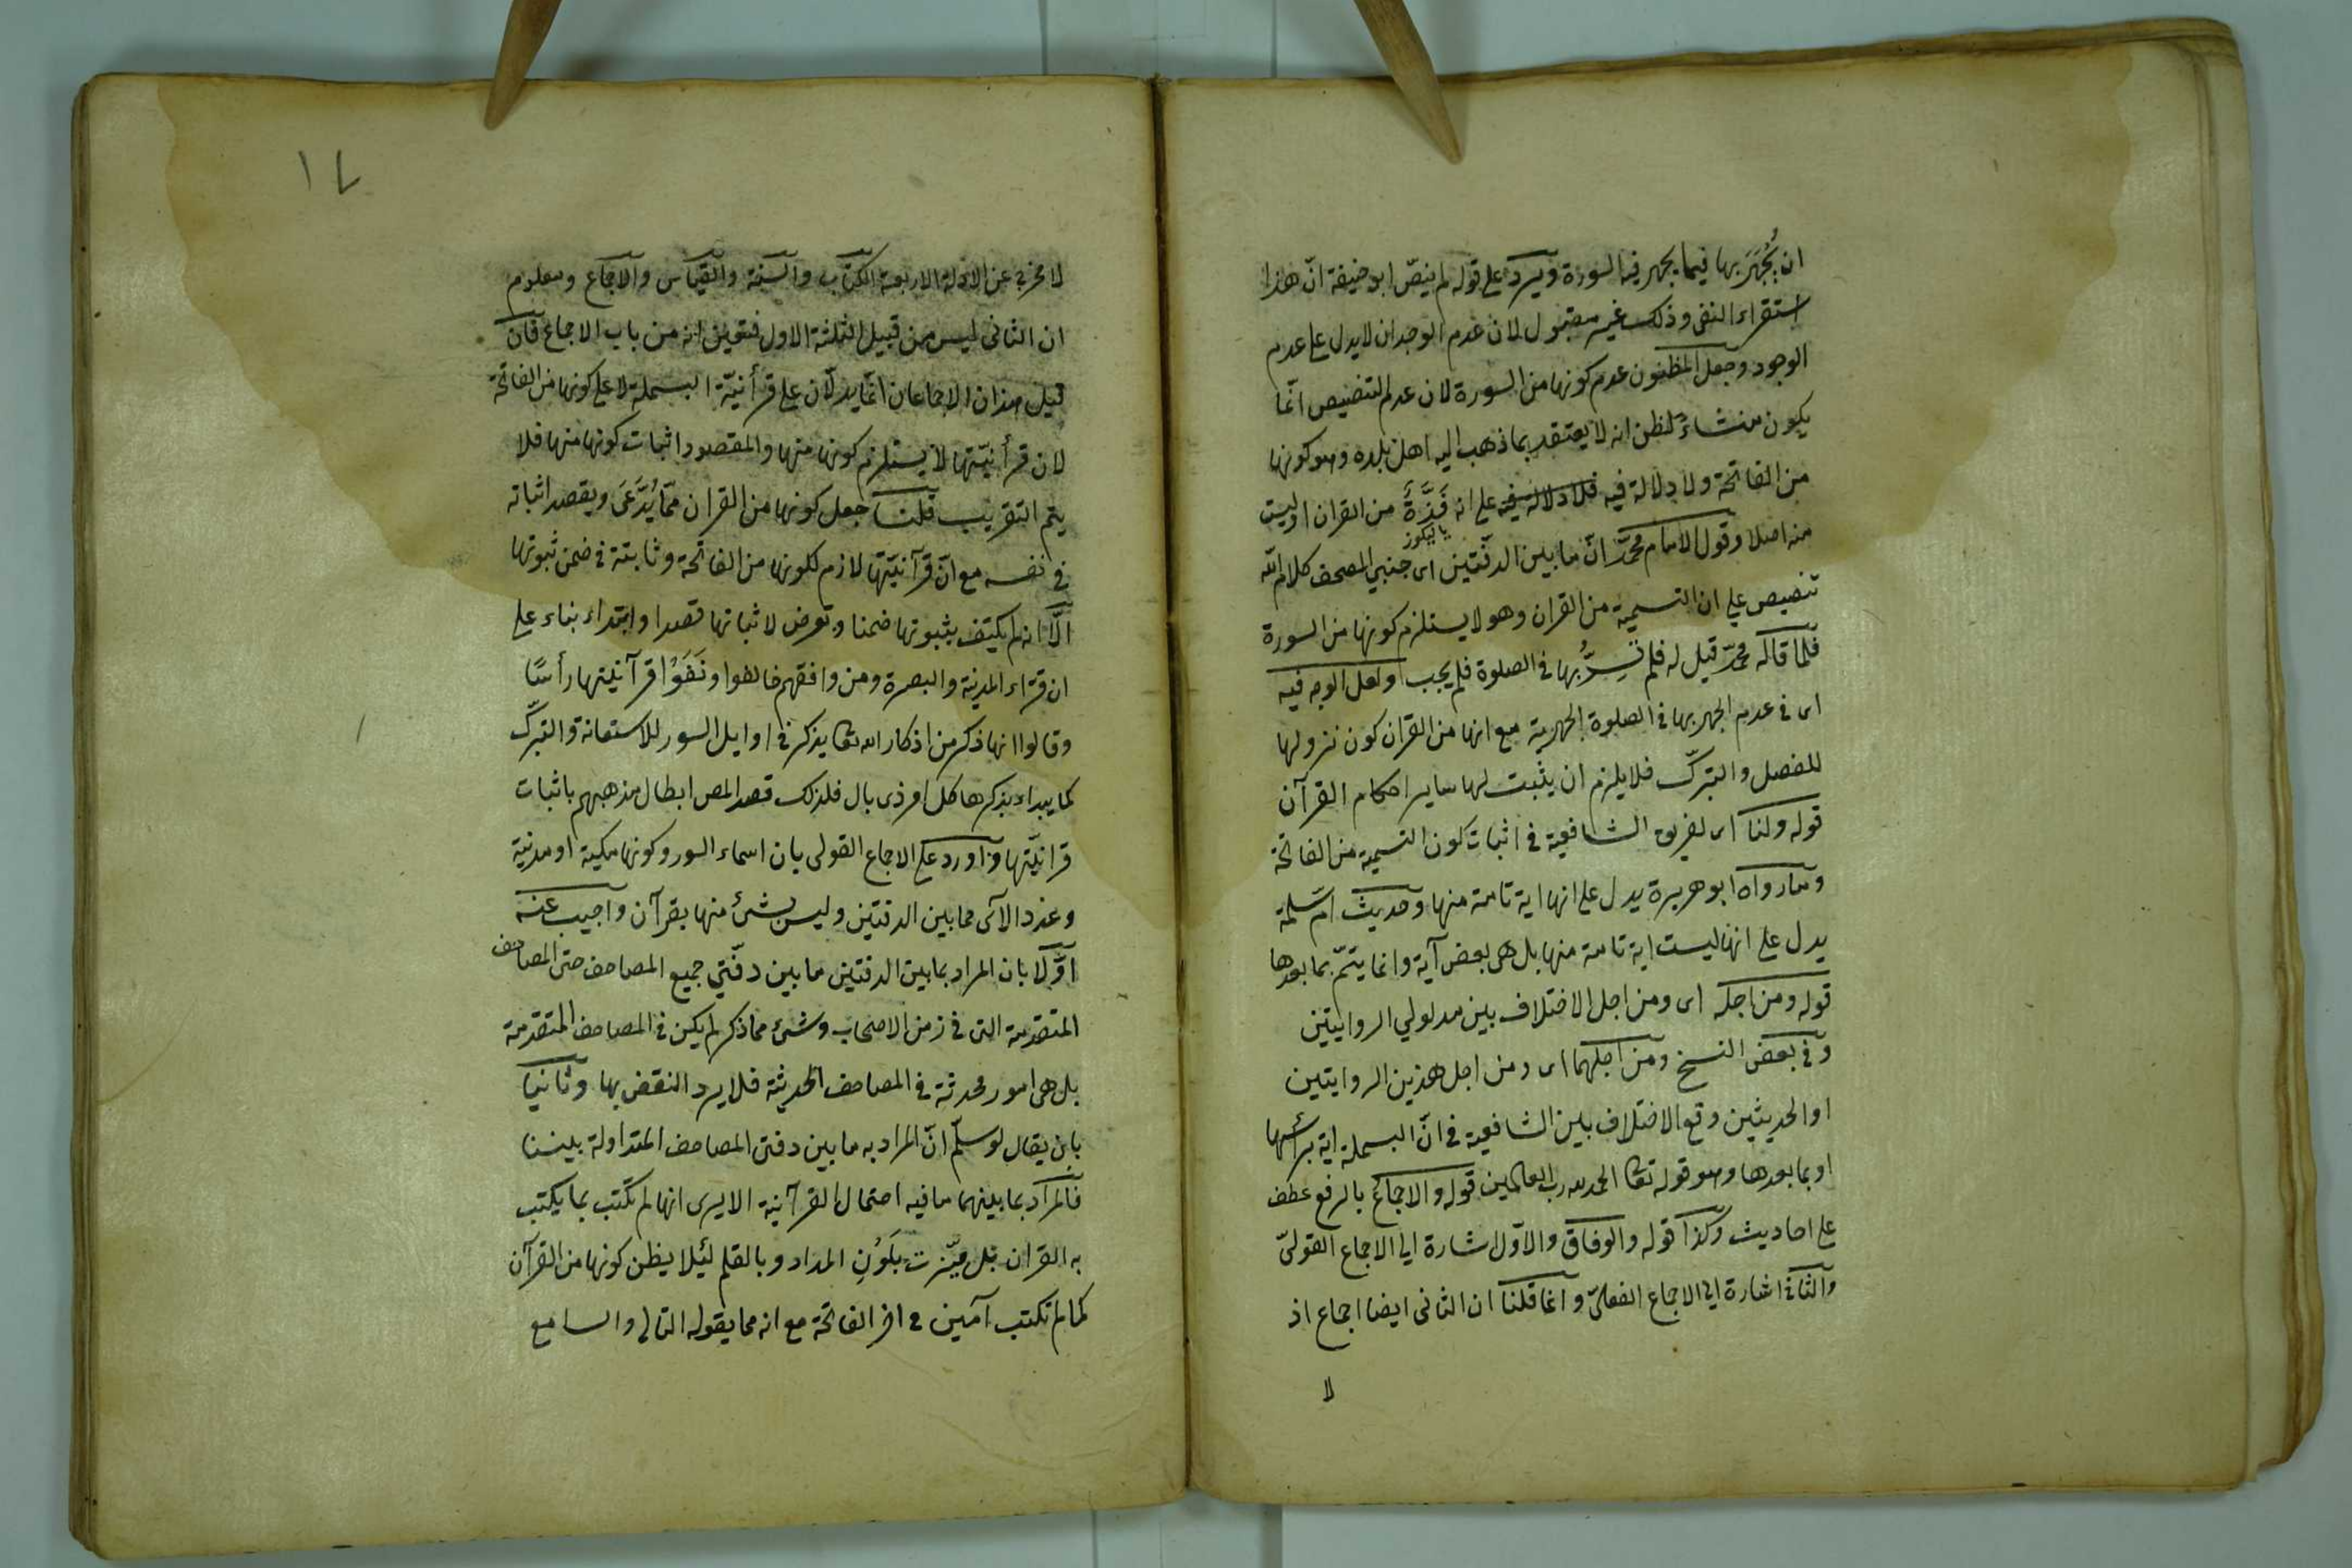 ان يُجْهَرَ بها فيما يجهر فيه السورة ويرد على قوله لم ينصّ ابو حنيفة انّ هذا
استقراء النفى وذلك غير مقبول لان عدم الوجدان لا يدل على عدم
الوجود وجعل المظنون عدم كونها من السورة لان عدم التنصيص انّما
يكون منشاء لظن انه لا يعتقد بما ذهب اليه اهل بلده وهو كونها
من الفاتحة ولا دلالة فيه فلا دلالة فيه على انه فَذَّةً من القران او ليست
منه اصلا وقول الامام محمّد انّ ما بين الدفّتين اى جنبي المصحف كلام اللّه
تنصيص على ان التسمية من القران وهو لا يستلزم كونها من السورة
فلما قاله محمّد قيل له فلم تُسِرُّ بها فى الصلوة فلم يجب ولعل الوجه فيه
اى فى عدم الجهر بها فى الصلوة الجهرية مع انها من القران كون نزولها
للفصل والتبرّك فلا يلزم ان يثبت لها ساير احكام القرآن
قوله ولنا اى لفريق الشافعية فى اثبات كون التسمية من الفاتحة
وما رواه ابو هريرة يدل على انها اية تامة منها وحديث ام سلمة
يدل على انها ليست اية تامة منها بل هى بعض آية وانما يتمّ بما بعدها
قوله ومن اجله اى ومن اجل الاختلاف بين مدلولي الروايتين
وفى بعض النسخ ومن اجلهما اى ومن اجل هذين الروايتين
او الحديثين وقع الاختلاف بين الشافعية فى انّ البسملة اية برأسها
او بما بعدها وهو قوله تعا الحمد لله رب العالمين قوله والاجماع بالرفع عطف
على احاديث وكذا قوله والوفاق والاول اشارة الى الاجماع القولىّ
والثانى اشارة الى الاجماع الفعلىّ وانما قلنا ان الثانى ايضا اجماع اذ
لا
١٧
لا مخرج عن الادلة الاربعة الكتاب والسنة والقياس والاجماع ومعلوم
ان الثانى ليس من قبيل الثلثة الاول فتعين انه من باب الاجماع فان
قيل هذان الاجماعان انّما يدلّان على قرأنيّة البسملة لا على كونها من الفاتحة
لان قرأنيّتها لا يستلزم كونها منها والمقصود اثبات كونها منها فلا
يتم التقريب قلنا جعل كونها من القران ممّا يُدَّعَى ويقصد اثباته
فى نفسه مع انّ قرآنيّتها لازم لكونها من الفاتحة وثابتة فى ضمن ثبوتها
الّا انه لم يكتف بثبوتها ضمنا وتعرض لاثباتها قصدا وابتداء بناء على
ان قرّاء المدينة والبصرة ومن وافقهم خالفوا ونَفَوْا قرآنيتها رأسًا
وقالوا انها ذكر من اذكار الله تعا يذكر فى اوايل السور للاستعانة والتبرّك
كما يبداء بذكرها كل امر ذى بال فلذلك قصد المص ابطال مذهبهم باثبات
قرانيّتها واورد على الاجماع القولى بان اسماء السور وكونها مكية او مدنية
وعدد الآى مما بين الدفتين وليس بشئ منها بقرآن واجيب عنه
اوّلا بان المراد بما بين الدفتين ما بين دفّتي جميع المصاحف حتى المصاحف
المتقدمة التى فى زمن الاصحاب وشئ مما ذكر لم يكن فى المصاحف المتقدمة
بل هى امور محدثة فى المصاحف الحديثة فلا يرد النقض بها وثانيا
بان يقال لو سلّم انّ المراد به ما بين دفتى المصاحف المتداولة بيننا
فالمراد بما بينهما ما فيه احتمال القرآنية الا يرى انها لم تكتب بما يكتب
به القران بل ميّزت بلَوْنِ المداد وبالقلم لئلا يظن كونها من القرآن
كما لم تكتب آمين فى اخر الفاتحة مع انه مما يقوله التالى والسامع